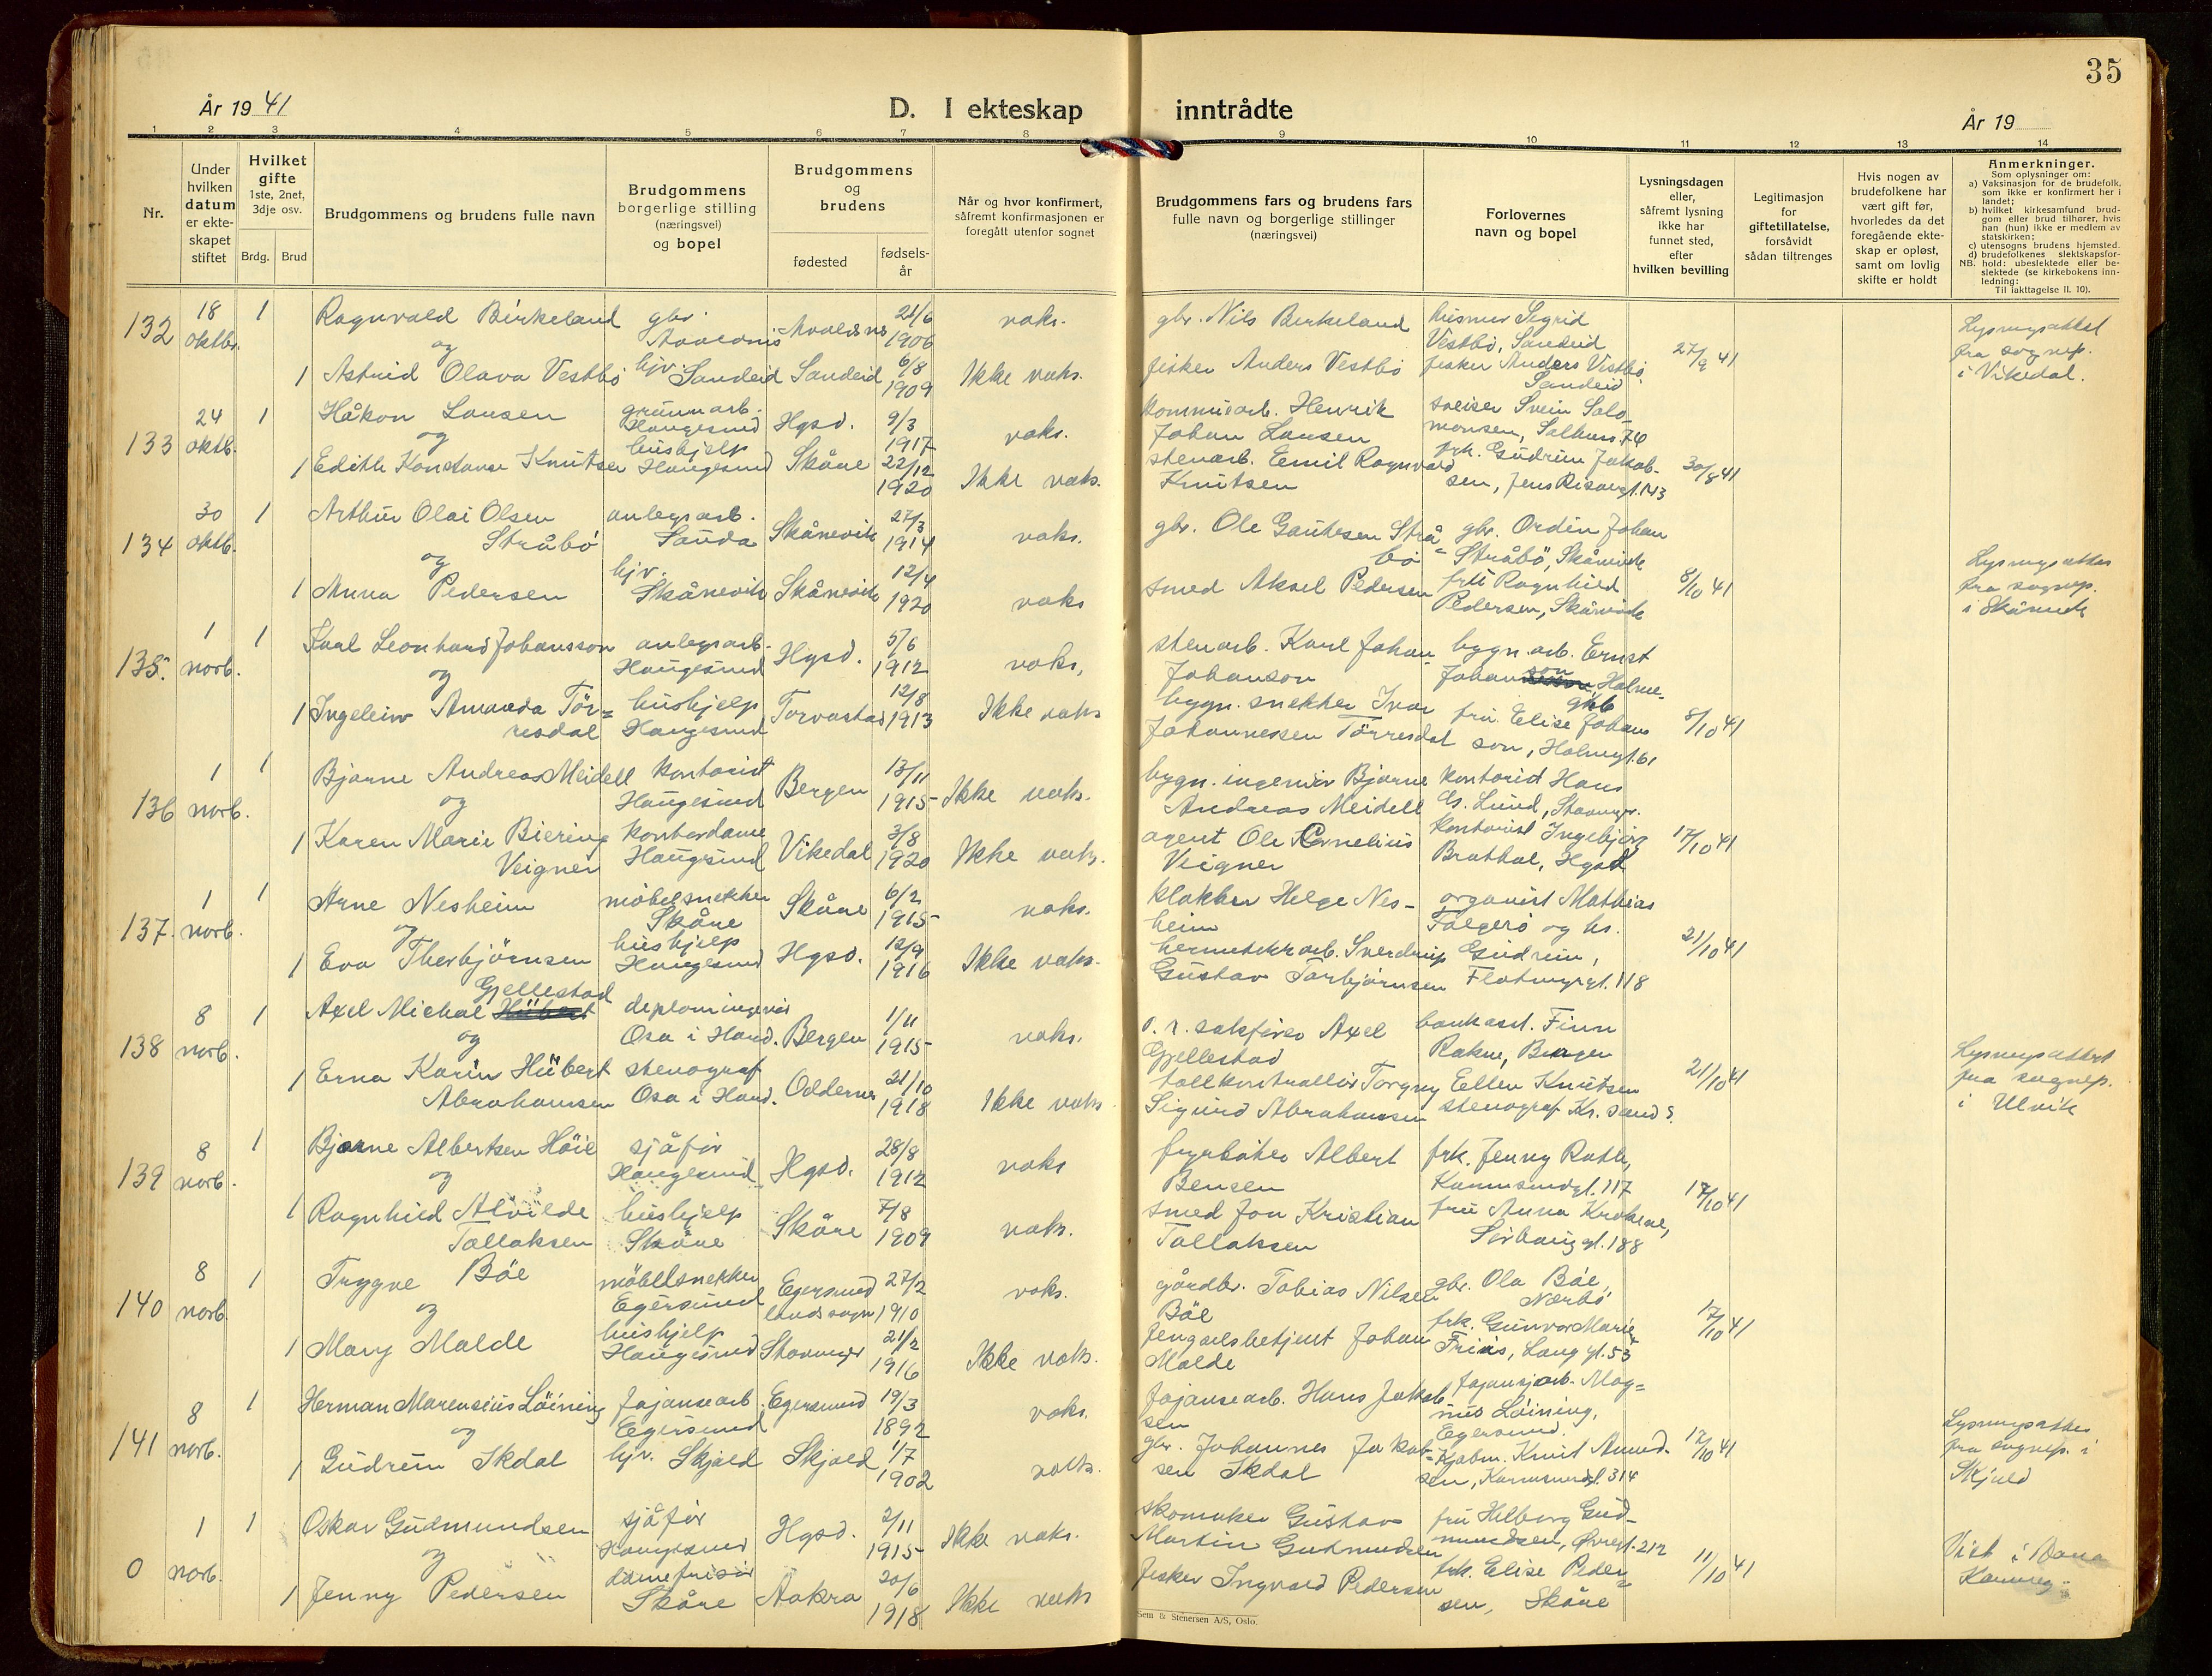 35
År 1941
D. I ekteskap inntrådte
År 19
1 2 3 4 5 6 7 8 9 10 11 12 13 14
Nr.
Under hvilken datum er ekteskapet stiftet
Hvilket gifte
1ste, 2net, 3dje osv.
Brdg. Brud
Brudgommens og brudens fulle navn
Brudgommens borgerlige stilling (næringsvei) og bopel
Brudgommens og brudens
fødested
fødselsår
Når og hvor konfirmert, såfremt konfirmasjonen er foregått utenfor sognet
Brudgommens fars og brudens fars fulle navn og borgerlige stillinger (næringsvei)
Forlovernes navn og bopel
Lysningsdagen eller, såfremt lysning ikke har funnet sted, efter hvilken bevilling
Legitimasjon for giftetillatelse, forsåvidt sådan tiltrenges
Hvis nogen av brudefolkene har vært gift før, hvorledes da det foregående ekteskap er opløst, samt om lovlig skifte er holdt
Anmerkninger.
Som oplysninger om:
a) Vaksinasjon for de brudefolk, som ikke er konfirmert her i landet;
b) hvilket kirkesamfund brudgom eller brud tilhører, hvis han (hun) ikke er medlem av statskirken;
c) utensogns brudens hjemsted.
d) brudefolkenes slektskapsforhold: ubeslektede eller beslektede (se kirkebokens innledning:
NB.
Til iakttagelse II. 10).
132 18 oktbr. 1 Ragnvald Birkeland gbr. 21/6 1906 vaks. gbr. Nils Birkeland husmor Sigrid Vestbø, Sandeid
og
1 Astrid Olava Vestbø hjv. Sandeid Sandeid 6/8 1909 Ikke vaks. fisker Anders Vestbø fisker Anders Vestbø Sandeid 27/9 41
Lysingsattest fra sognep. i Vikedal.
133 24 oktb. 1 Håkon Lausen Haugesund Hgsd. 9/3 1917 vaks. Henrik Johan Lausen Svein Salomonsen, Salhusv. 74
og
1 Edith Konstanse Knutsen hushjelp Haugesund Skåre 22/12 1920 Ikke vaks. stenarb. Emil Ragnvald Knutsen frk. Gudrun Jakobsen, Jens Risøegt. 143 30/8 41
134 30 oktb. 1 Arthur Olai Olsen Stråbø anlegsarb. Sauda Skånevik 27/3 1914 vaks. gbr. Ole Gautesen Stråbø gbr. Ordin Johan Stråbø, Skånevik
og
1 Anna Pedersen hjv. Skånevik Skånevik 12/4 1920 vaks smed Aksel Pedersen fru Ragnhild Pedersen, Skånevik 8/10 41
Lysingsattes fra sognep. i Skånevik
135. 1 novb. 1 Karl Leonhard Johansson anlegsarb. Haugesund Hgsd. 5/6 1912 vaks, stenarb. Karl Johan Johanson bygn. arb. Ernst Johanson, Holme-
og
1 Ingeleiv Amanda Tørresdal hushjelp Haugesund Torvastad 12/8 1913 Ikke vaks bygn. snekker Ivar Johannessen Tørresdal fru. Elise Johanson, Holmegt. 61 8/10 41
136 1 novb. 1 Bjarne Andreas Meidell kontorist Haugesund Bergen 13/11 1915 Ikke vaks. bygn. ingeniør Bjarne Andreas Meidell kontorist Hans Lund, Stavanger.
og
1 Karen Marie Biering Veigner kontordame Haugesund Vikedal 3/8 1920 Ikke vaks. agent Ole Kornelius Veigner kontorist Ingebjørg Brathol, Hgsd 17/10 41
137. 1 novb. 1 Arne Nesheim møbelsnekker Skåre Skåre 6/2 1915 vaks. klokker Helge Nesheim organist Mathias Falgerø og hs.
og
1 Eva Thorbjørnsen hushjelp Haugesund Hgsd. 12/9 1916 Ikke vaks. hermetikkarb. Sverdrup Gustav Torbjørnsen Gudrun, Flotmyrgt. 118 21/10 41
138 8 novb. 1 Axel Michal Gjellestad diplomingeniør Osa i Hard. Bergen 1/11 1915 vaks. o. r. sakfører Axel Gjellestad bankass. Finn Rakne, Bergen
og
1 Erna Karin Hübert Abrahamsen stenograf Osa i Hard. Oddernes 21/10 1918 Ikke vaks tollkontrollør Torgny Sigurd Abrahamsen Ellen Knutsen stenograf Kr. sand S. 21/10 41
Lysingsattest fra sognep. i Ulvik
139 8 novb. 1 Bjarne Albertsen Høie sjåfør Haugesund Hgsd. 28/8 1912 vaks fyrbøter Albert Bensen frk. Jenny Roth, Karmsundgt. 117
og
1 Ragnhild Alvilde Tallaksen hushjelp Skåre Skåre 7/8 1909 vaks. smed Jon Kristian Tallaksen fru Anna Krokene, Sørhauggt. 188 17/10 41
140 8 novb. 1 Trygve Bøe møbelsnekker Egersund Egersund landssogn 27/2 1910 vaks. gårdbr. Tobias Nilsen Bøe gbr. Ola Bøe, Nærbø
og
1 Mary Malde hushjelp Haugesund Stavanger 21/2 1916 Ikke vaks. fengselsbetjent Johan Malde frk. Gunvor Marie Friis, Langgt. 53 17/10 41
141 8 novb. 1 Herman Marensius Løining fajansearb. Egersund Egersund 19/3 1892 vaks. fajansearb. Hans Jakobsen fajansjarb. Magnus Løining, Egersund.
og
1 Gudrun Ikdal hjv. Skjold Skjold 1/7 1902 vaks. gbr. Johannes Jakobsen Ikdal kjøbm. Knut Amundsen, Karmsundgt. 314 12/10 41
Lysingsattes fra sognep. i Skjold
0 1 novb. 1 Oskar Gudmundsen sjåfør Haugesund Hgsd. 2/11 1915 Ikke vaks. skomaker Gustav Martin Gudmundsen fru Helborg Gudmundsen, Øvregt. 212
og
1 Jenny Pedersen damefrisør Skåre Aakra 20/6 1918 Ikke vaks fisker Ingvald Pedersen frk. Elise Pedersen, Skåre 11/10 41
Vist i
Sem & Stenersen A/S, Oslo.